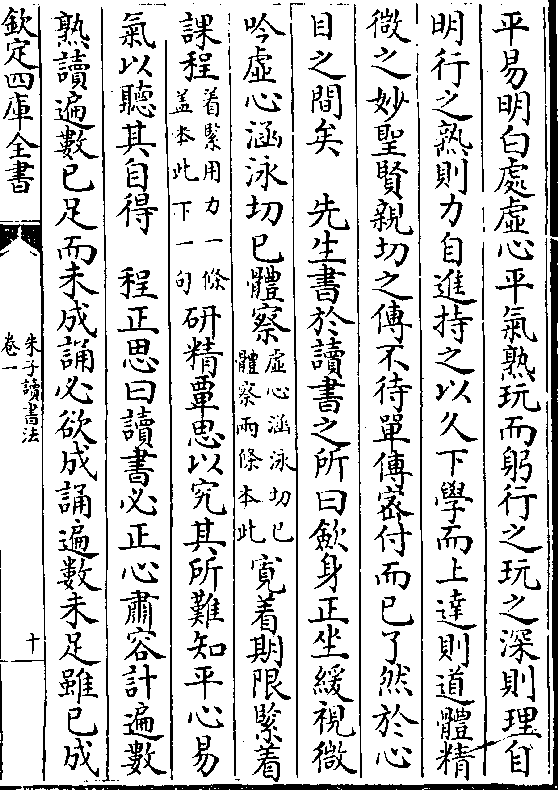 平易明白處虛心平氣熟玩而躬行之玩之深則理自
明行之熟則力自進持之以久下學而上達則道體精
微之妙聖賢親切之傳不待單傳宻付而已了然於心
目之間矣　先生書於讀書之所曰歛身正坐緩視微
吟虛心涵泳切已體察虛心涵泳切已體察兩條本此寛着期限緊着
課程着緊用力一條盖本此下一句研精覃思以究其所難知平心易
氣以聽其自得　程正思曰讀書必正心肅容計遍數
熟讀遍數已足而未成誦必欲成誦遍數未足雖已成
欽定四庫全書
朱子讀書法
卷一
十